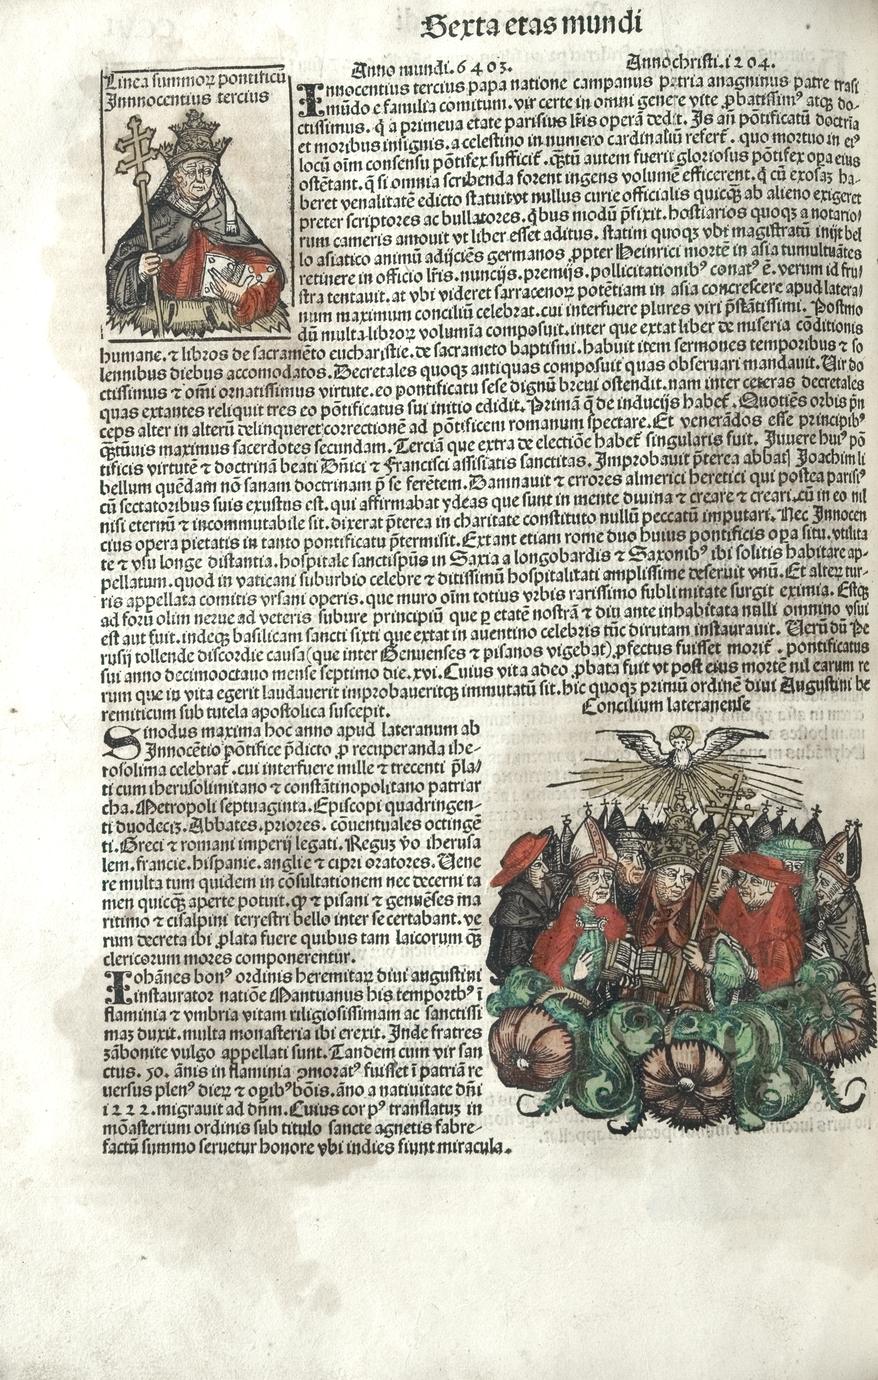 Sexta etas mundi
Linea summoꝝ pontificū
Innnocentius tercius
Anno mundi.6403.
Anno christi.1204.
Innocentius tercius papa natione campanus patria anagninus patre trasi
mūdo e familia comitum. vir certe in omni genere vite ꝓbatissimꝰ atqꝫ do-
ctissimus. q̇ a primeua etate parisius lr̄is operā dedit. Is an̄ pōtificatū doctria
et moribus insignis. a celestino in numero cardinaliū refert̄. quo mortuo in eiꝰ
locū oīm consensu pōtifex sufficit̄. qͣꝫtū autem fuerit gloriosus pōtifex oꝑa eius
ostētant. q̇ si omnia scribenda forent ingens volumē efficerent. q̇ cū exosaꝫ ha-
beret venalitatē edicto statuit vt nullus curie officialis quicqꝫ ab alieno exigeret
preter scriptores ac bullatores. q̇bus modū p̄fixit. hostiarios quoqꝫ a notario/
rum cameris amouit vt liber esset aditus. statim quoqꝫ vbi magistratū inijt bel
lo asiatico animū adijciēs germanos ꝓpter Heinrici mortē in asia tumultuātes
retinere in officio lr̄is. nuncijs. premijs. pollicitationibꝰ conatꝰ ē. verum id fru/
stra tentauit. at vbi videret sarracenoꝝ potētiam in asia concrescere apud latera/
num maximum conciliū celebrat. cui interfuere plures viri p̄stātissimi. Postmo
dū multa libroꝝ volumīa composuit. inter que extat liber de miseria cōditionis
humane. ⁊ libros de sacramēto eucharistie. de sacramēto baptismi. habuit item sermones temporibus ⁊ so
lennibus diebus accomodatos. Decretales quoqꝫ antiquas composuit quas obseruari mandauit. Uir do
ctissimus ⁊ om̄i ornatissimus virtute. eo pontificatu sese dignū breui ostendit. nam inter ceteras decretales
quas extantes reliquit tres eo pōtificatus sui initio edidit. Primā q̇ de inducijs habet̄. Quotiēs orbis p̄n
ceps alter in alterū delinqueret correctionē ad pōtificem romanum spectare. Et venerādos esse principibꝰ
qͣꝫtūuis maximus sacerdotes secundam. Terciā que extra de electiōe habet̄ singularis fuit. Iuuere huiꝰ pō
tificis virtutē ⁊ doctrinā beati Dn̄ici ⁊ Francisci assisiatis sanctitas. Improbauit p̄terea abbatꝭ Joachim li
bellum quēdam nō sanam doctrinam p̄ se ferētem. Damnauit ⁊ errores almerici heretici qui postea parisiꝰ
cū sectatoribus suis exustus est. qui affirmabat ydeas que sunt in mente diuina ⁊ creare ⁊ creari. cū in eo nil
nisi eternū ⁊ incommutabile sit. dixerat p̄terea in charitate constituto nullū peccatū imputari. Nec Innocen
cius opera pietatis in tanto pontificatu p̄termisit. Extant etiam rome duo huius pontificis oꝑa situ. vtilita
te ⁊ vsu longe distantia. hospitale sanctispūs in Saxia a longobardis ⁊ Saxonibꝰ ibi solitis habitare ap-
pellatum. quod in vaticani suburbio celebre ⁊ ditissimū hospitalitati amplissime deseruit vnū. Et alteꝝ tur-
ris appellata comitis vrsani operis. que muro oīm totius vrbis rarissimo sublimitate surgit eximia. Estqꝫ
ad forū olim nerue ad veteris subure principiū que ꝑ etatē nostrā ⁊ diu ante inhabitata nulli omnino vsui
est aut fuit. indeqꝫ basilicam sancti sixti que extat in auentino celebris tūc dirutam instaurauit. Uerū dū Pe
rusij tollende discordie causa(que inter Genuenses ⁊ pisanos vigebat)ꝓfectus fuisset morit̄. pontificatus
sui anno decimooctauo mense septimo die. xvi. Cuius vita adeo ꝓbata fuit vt post eius mortē nil earum re
rum que in vita egerit laudauerit improbaueritqꝫ immutatū sit. hic quoqꝫ primū ordinē diui Augustini he
remiticum sub tutela apostolica suscepit.
Concilium lateranense
Sinodus maxima hoc anno apud lateranum ab
Innocētio pōtifice p̄dicto ꝓ recuperanda ihe-
rosolima celebrat̄. cui interfuere mille ⁊ trecenti p̄la/
ti cum iherusolimitano ⁊ constātinopolitano patriar
cha. Metropoli septuaginta. Episcopi quadringen-
ti duodeciꝫ. Abbates. priores. cōuentuales octingē
ti. Greci ⁊ romani imperij legati. Regūꝫ vo iherusa
lem. francie. hispanie. anglie ⁊ cipri oratores. Uene
re multa tum quidem in cōsultationem nec decerni ta
men quicqꝫ aperte potuit. qꝙ ⁊ pisani ⁊ genuēses ma
ritimo ⁊ cisalpini terrestri bello inter se certabant. ve
rum decreta ibi ꝓlata fuere quibus tam laicorum qͣꝫ
clericorum mores componerentur.
Iohānes bonꝰ ordinis heremitaꝝ diui augustini
instaurator natiōe Mantuanus his temporibꝰ ī
flaminia ⁊ vmbria vitam riligiosissimam ac sanctissi
maꝫ duxit. multa monasteria ibi erexit. Inde fratres
zābonite vulgo appellati sunt. Tandem cum vir san
ctus. 50. ānis in flaminia ꝯmoratꝰ fuisset ī patriā re
uersus plenꝰ dieꝝ ⁊ oꝑibꝰ bōis. āno a natiuitate dn̄i
1222. migrauit ad dn̄m. Cuius corpꝰ translatuꝫ in
mōasterium ordinis sub titulo sancte agnetis fabre-
factū summo seruetur honore vbi indies fiunt miracula.